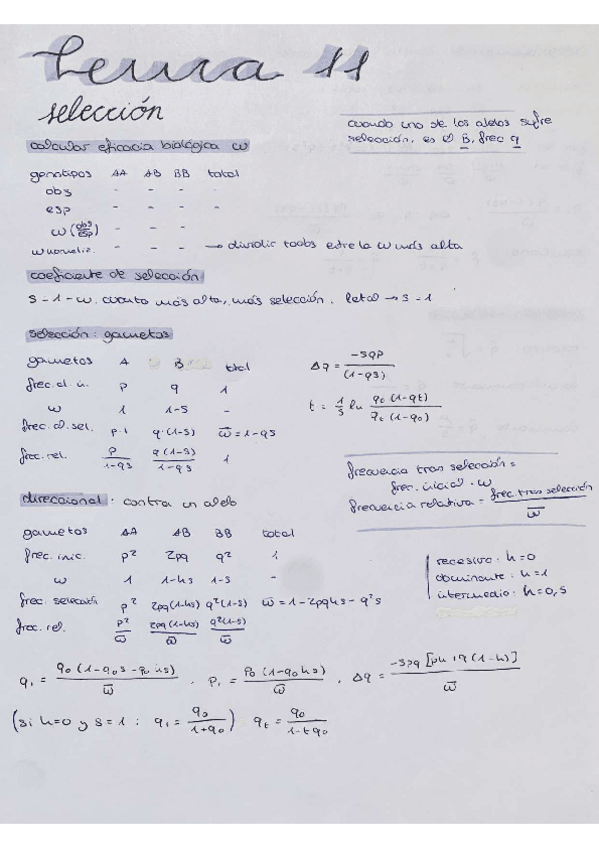 Tema 11
selección
cuando uno de los alelos sufre
selección, es el B, frec q
calcular eficacia biológica w
genotipos AA AB BB total
obs - - -
esp - - - -
w (obs/esp) - - -
w normaliz. - - - → dividir toobs entre la w más alta
coeficiente de selección
s = 1 - w. cuanto más alta, más selección. letal → s = 1
selección: gametos
gametos A B total
frec. al. ú. p q 1
w 1 1-s -
frec. al. sel. p·1 q·(1-s) w̅ = 1-qs
frec. rel. p/(1-qs) q(1-s)/(1-qs) 1
Δq = -sqp/(1-qs)
t = 1/s ln q₀(1-qt)/qt(1-q₀)
frecuencia tras selección =
frec. inicial · w
frecuencia relativa = frec. tras selección/w̅
direccional: contra un alelo
gametos AA AB BB total
frec. inic. p² 2pq q² 1
w 1 1-hs 1-s -
frec. selección p² 2pq(1-hs) q²(1-s) w̅ = 1-2pqhs - q²s
frec. rel. p²/w̅ 2pq(1-hs)/w̅ q²(1-s)/w̅
recesivo: h=0
dominante: h=1
intermedio: h=0,5
q₁ = q₀(1-q₀s-p₀hs)/w̅ , p₁ = p₀(1-q₀hs)/w̅ , Δq = -spq[ph+q(1-h)]/w̅
(si h=0 y s=1 : q₁ = q₀/1+q₀) qt = q₀/1-tq₀